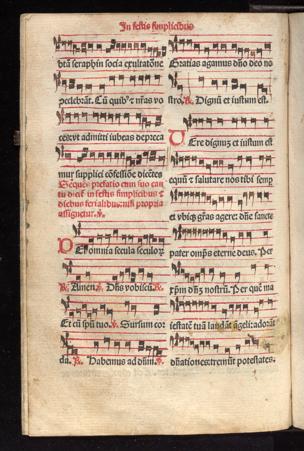 In festis simplicibus
btā seraphin socia exultatōne
ɔcelebrāt. Cū quibꝰ ⁊ nr̄as vo
ces vt admitti iubeas depreca
mur supplici ɔfessiōe dicētes
Sequit̉ prefatio cum suo can
tu dicēda in festis simplicibus ⁊
diebus ferialibus: nisi propria
assignetur. ℣.
PEr omnia secula seculoꝝ
℟. Amen. ℣. Dn̄s vobiscū. ℟.
Et cū spū tuo. ℣. Sursum cor
da. ℟. Habemus ad dn̄m. ℣.
Gratias agamus dn̄o deo no
stro. ℟. Dignū et iustum est.
VEre dignuꝫ et iustum est
equū ⁊ salutare nos tibi semp
et vbiqꝫ gr̄as agere: dn̄e sancte
pater omp̄s eterne deus. Per
xp̄m dn̄ꝫ nostrū. Per quē ma
iestatē tuā laudāt āgeli: adorāt
dn̄ationes: tremūt potestates.